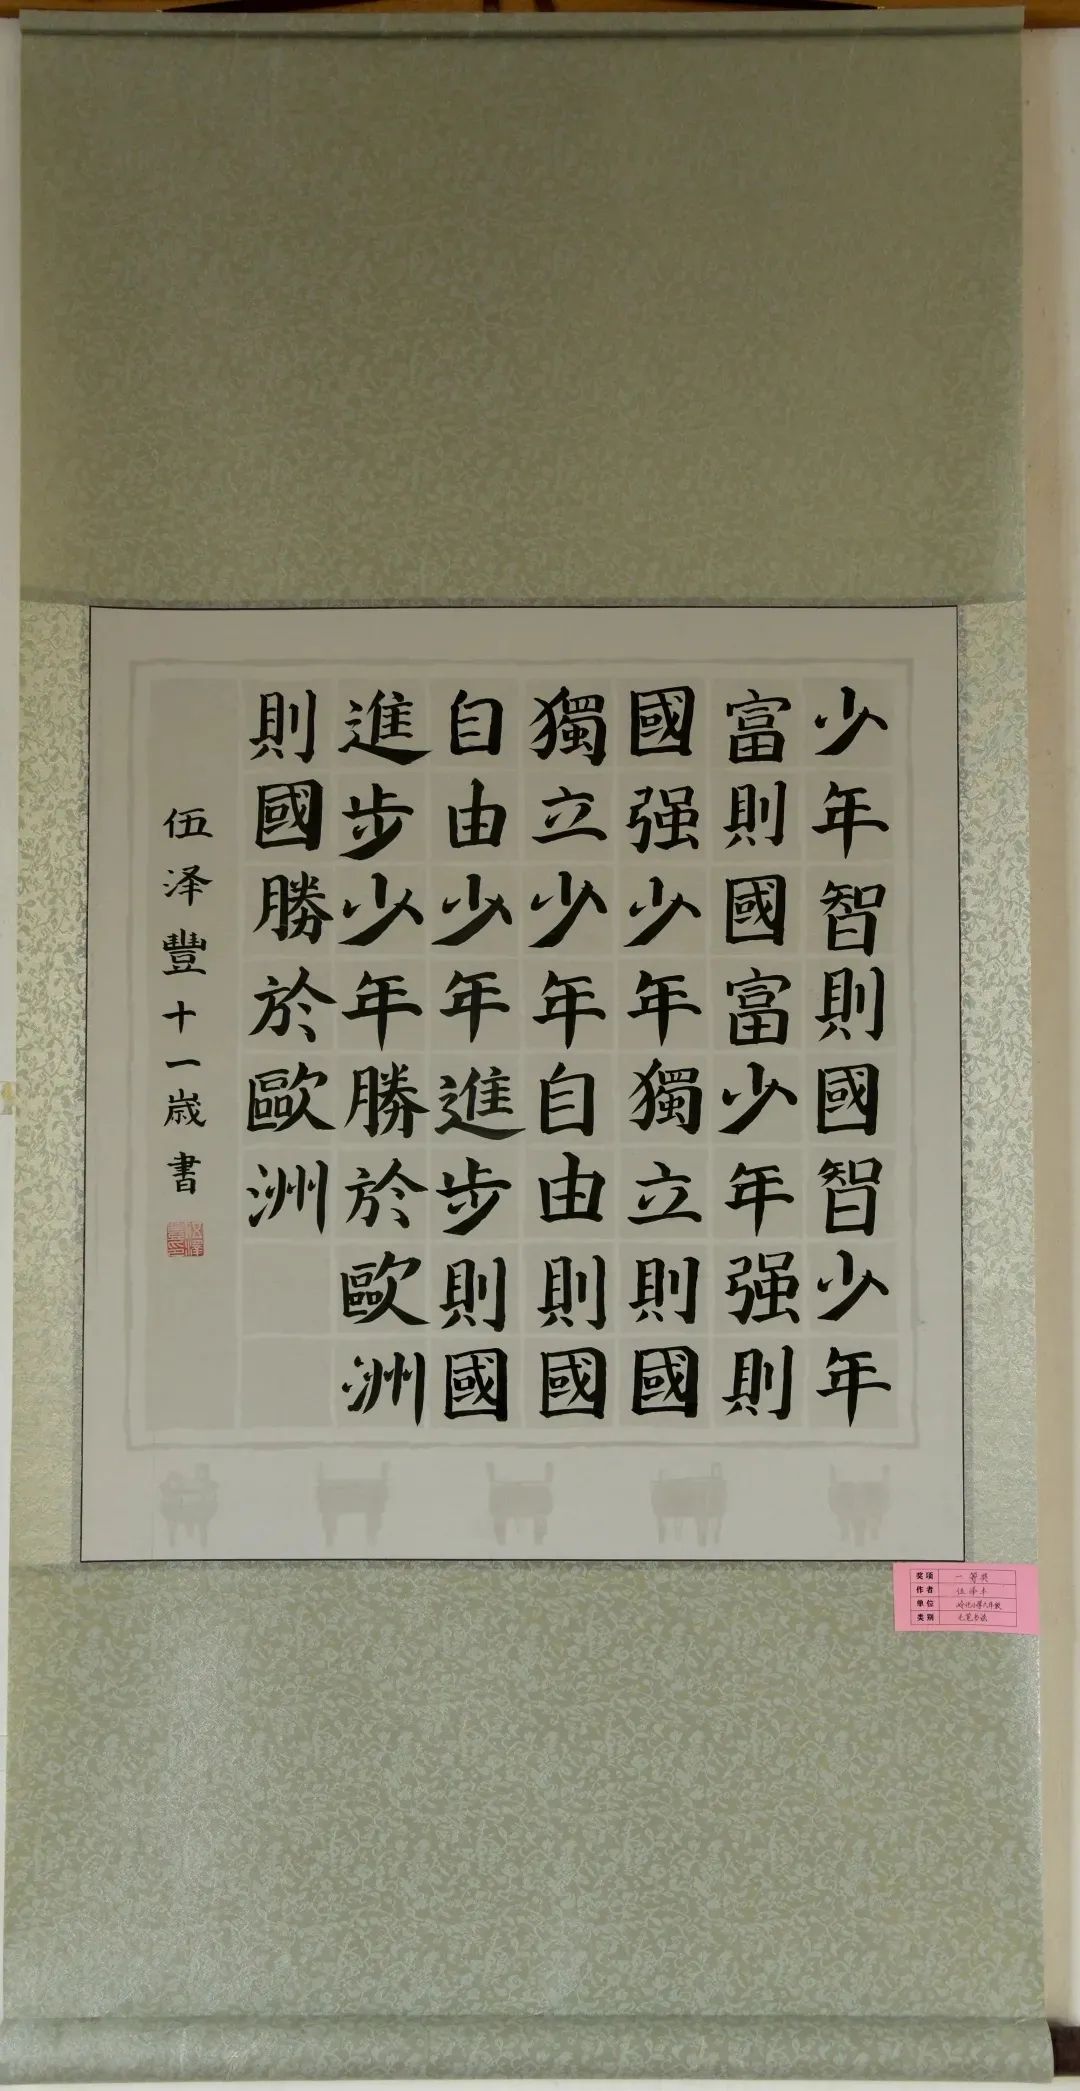 少年智則國智少年
富則國富少年强則
國强少年獨立則國
獨立少年自由則國
自由少年進步則國
進步少年勝於歐洲
則國勝於歐洲
伍泽豐十一歲書
奖项 一等奖
作者 伍泽丰
单位 小学六年级
类别 毛笔书法